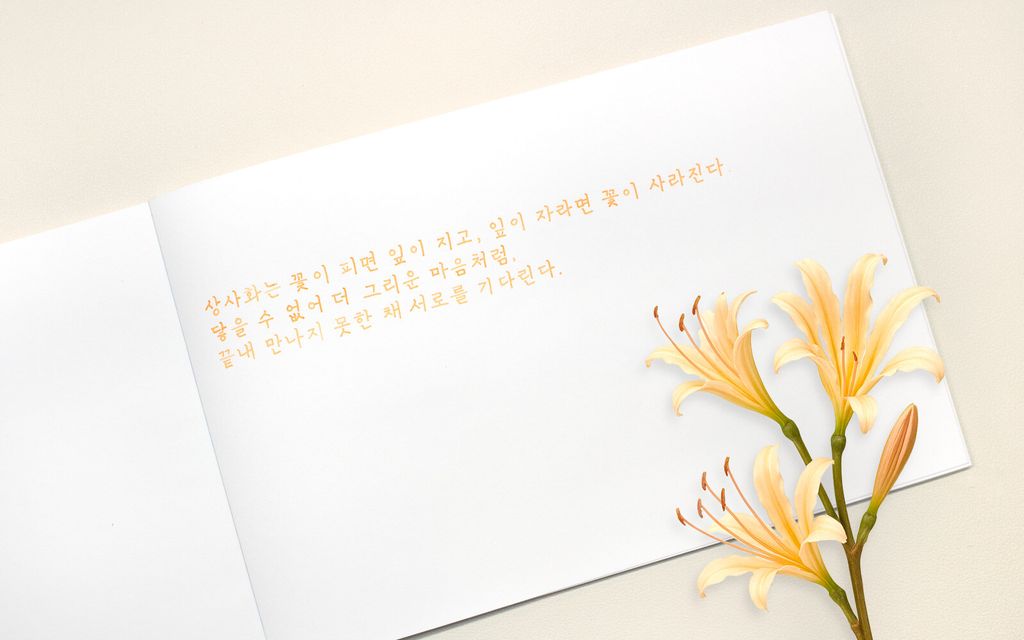 상사화는 꽃이 피면 잎이 지고, 잎이 자라면 꽃이 사라진다.
닿을 수 없어 더 그리운 마음처럼,
끝내 만나지 못한 채 서로를 기다린다.